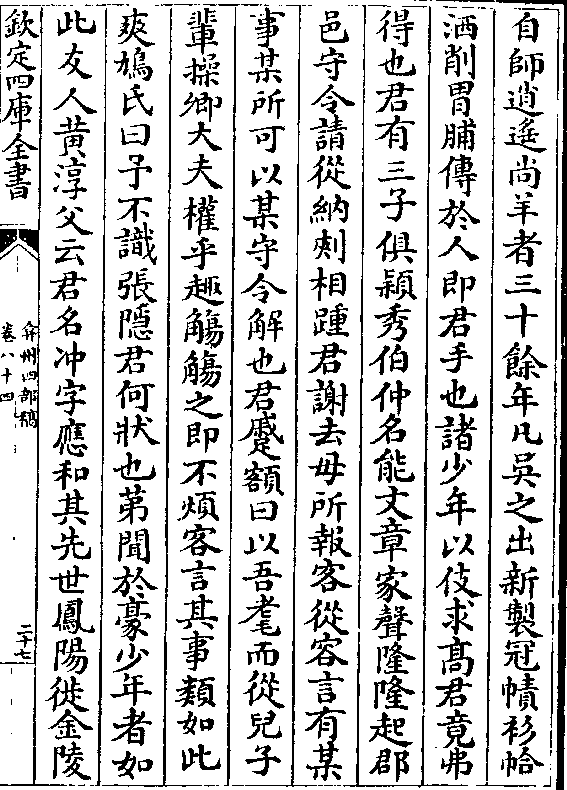 自師逍遙尚羊者三十餘年凡吳之出新製冠幘衫帢
洒削胃脯傳於人即君手也諸少年以伎求髙君竟弗
得也君有三子俱穎秀伯仲名能文章家聲隆隆起郡
邑守令請從納刺相踵君謝去毋所報客從容言有某
事某所可以某守令解也君蹙額曰以吾耄而從兒子
輩操卿大夫權乎趣觴觴之即不煩客言其事類如此
爽鳩氏曰予不識張隠君何狀也苐聞於豪少年者如
此友人黄淳父云君名冲字應和其先世鳳陽徙金陵
欽定四庫全書
弇州四部稿
卷八十四
二十七